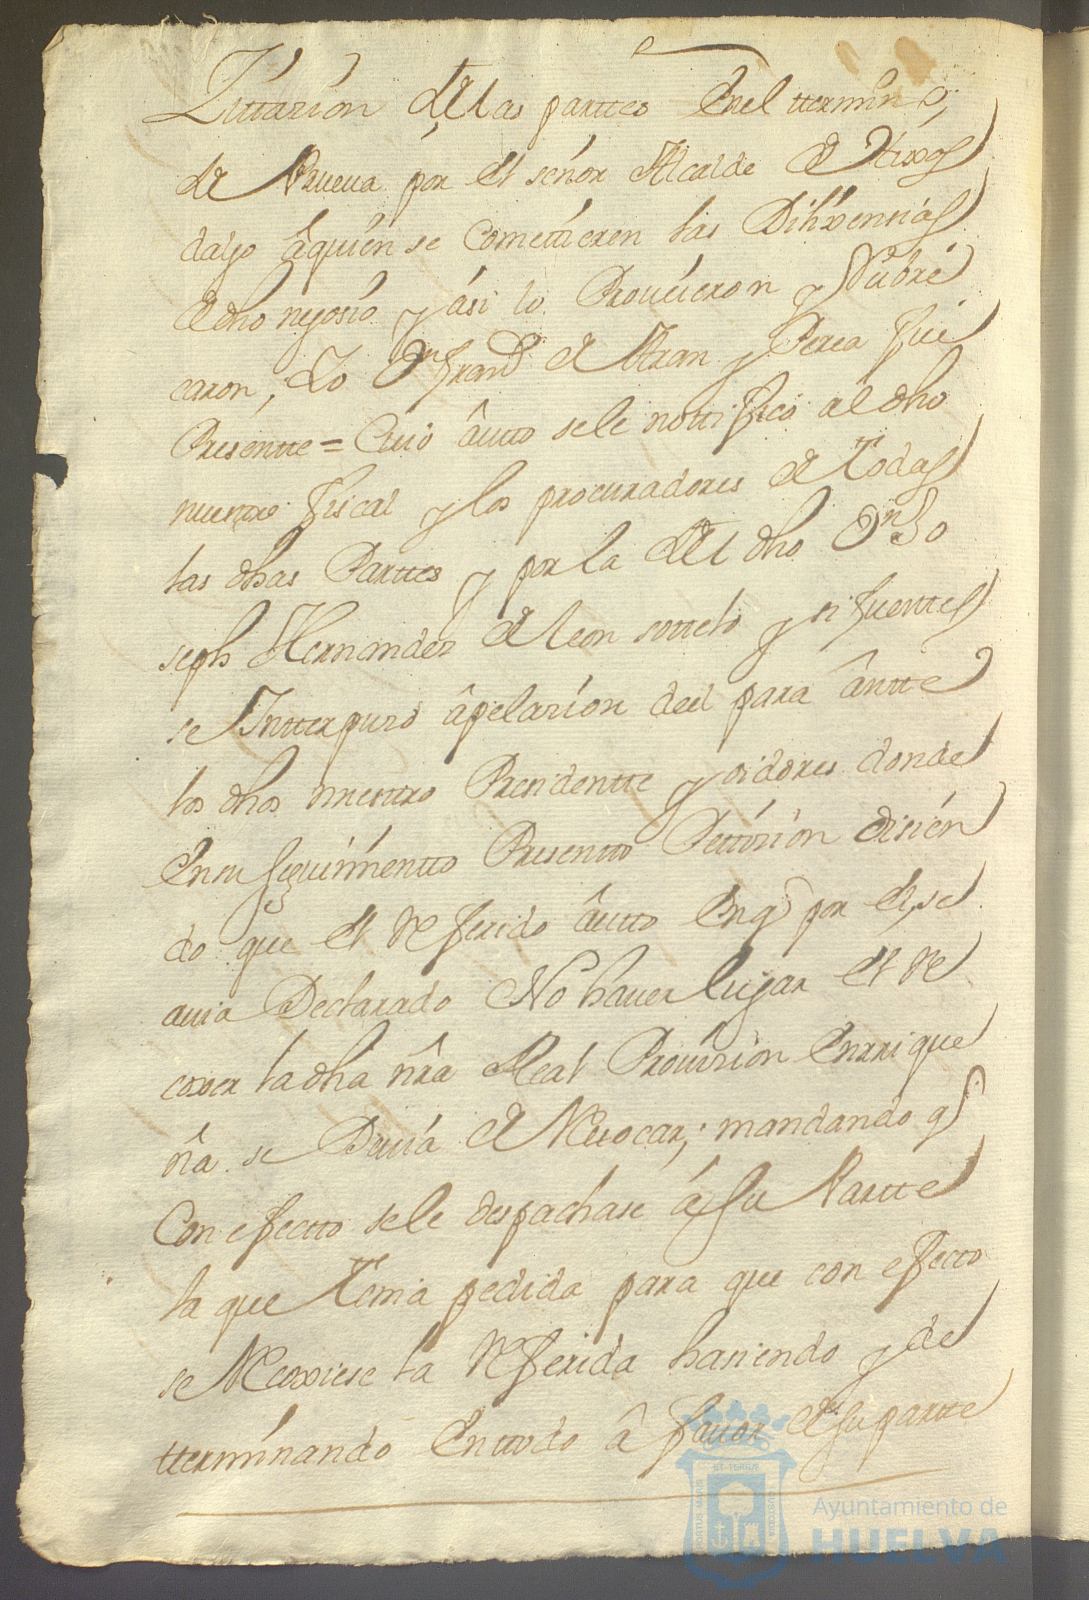 Zittazion de las parttes en el ttermino
de Prueua por el señor Alcalde de Hixos
dalgo â quien se comettieren las Dilixensias
de dho negosio y ási lo Proueieron y Rubri
caron, Yo Dn Franco de Aran y Perea fui
Presentte = Cuio âutto se le nottifico al dho
nuestro fiscal y los procuradores de Todas
las dhas Parttes y por la del dho Dn Jo
seph Hernandez de leon sottelo y sifuenttes
se Intterpuso âpelazion de el para ântte
los dhos nuestro Presidentte y oidores donde
en su seguimientto Presentto Pettizion disien
do que el Referido âutto en q por el, se
auia Declarado No hauer lugar el Re
coxer la dha nrâ Real Prouision
se Deuia de Reuocar; mandando q
Con efectto se le despachase â su Partte
la que Tenia pedida para que con efecto
se Recoxiese la Referida hasiendo y de
tterminando en ttodo â fauor de su partte
Ayuntamiento de
HUELVA